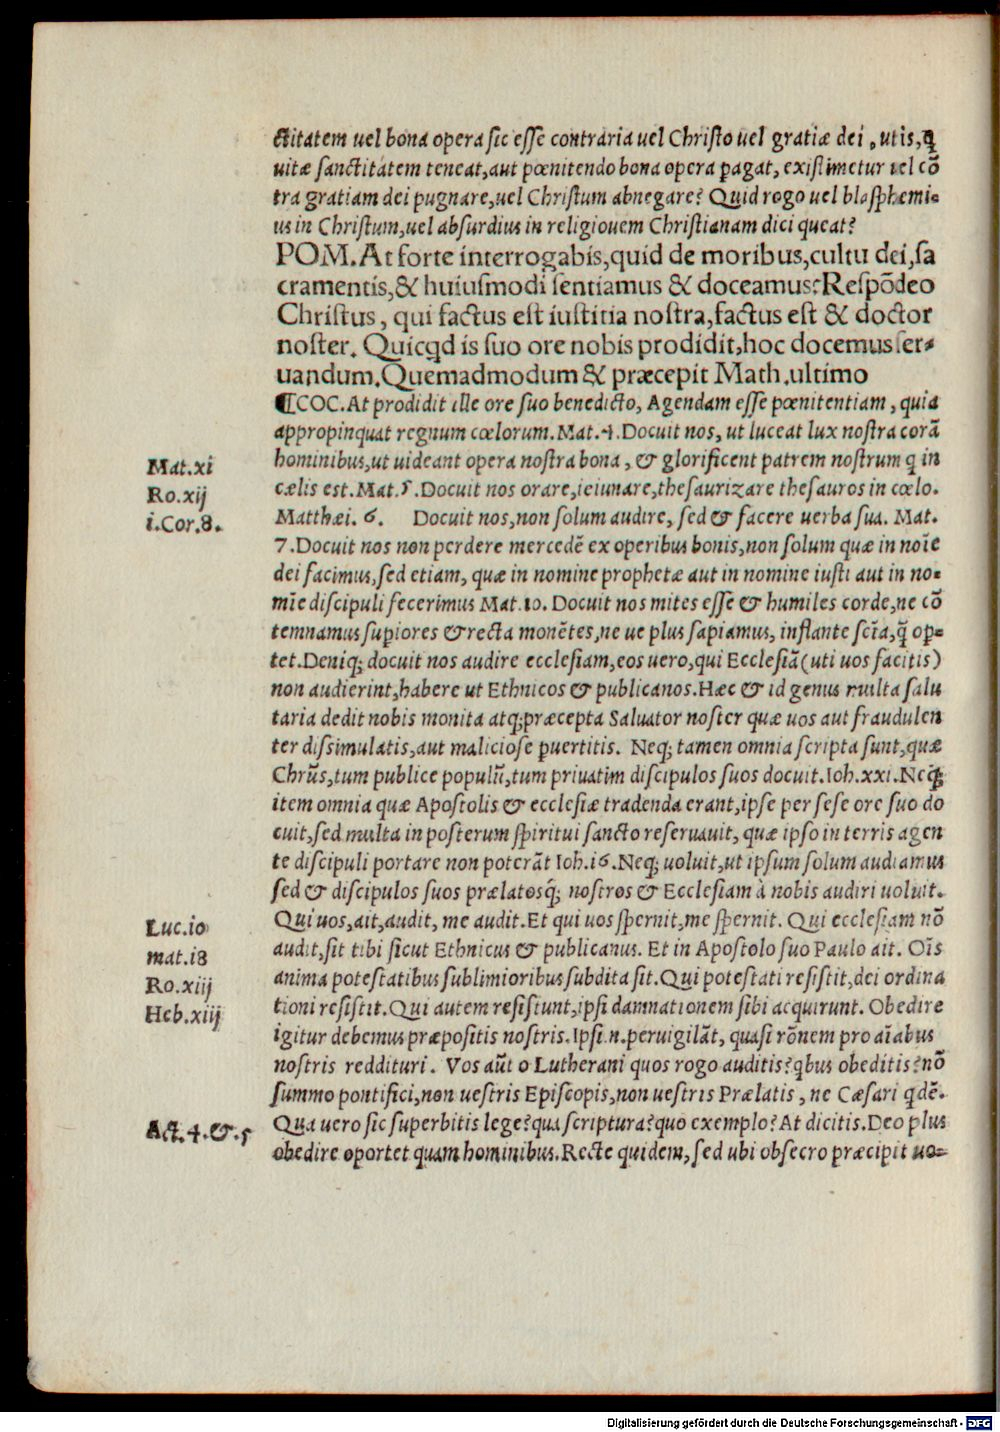 ctitatem uel bona opera sic esse contraria uel Christo uel gratiæ dei, utis, q̃
uitæ sanctitatem teneat, aut pœnitendo bona opera ꝑagat, existimetur uel cõ
tra gratiam dei pugnare, uel Christum abnegare? Quid rogo uel blasphemi-
us in Christum, uel absurdius in religiouem Christianam dici queat?
POM. At forte interrogabis, quid de moribus, cultu dei, sa
cramentis, & huiusmodi sentiamus & doceamus? Respõdeo
Christus, qui factus est iustitia nostra, factus est & doctor
noster. Quicqd is suo ore nobis prodidit, hoc docemus ser-
uandum. Quemadmodum & præcepit Math. ultimo
¶COC. At prodidit ille ore suo benedicto, Agendam esse pœnitentiam, quia
appropinquat regnum cœlorum. Mat. 4. Docuit nos, ut luceat lux nostra corã
Mat. xi hominibus, ut uideant opera nostra bona, & glorificent patrem nostrum q in
Ro. xij cælis est. Mat. 5. Docuit nos orare, ieiunare, thesaurizare thesauros in cœlo.
i. Cor. 8. Matthæi. 6. Docuit nos, non solum audire, sed & facere uerba sua. Mat.
7. Docuit nos non perdere mercedẽ ex operibus bonis, non solum quæ in noĩe
dei facimus, sed etiam, quæ in nomine prophetæ aut in nomine iusti aut in no-
mĩe discipuli fecerimus Mat. 10. Docuit nos mites esse & humiles corde, ne cõ
temnamus suꝑiores & recta monẽtes, ne ue plus sapiamus, inflante scĩa, q̃ op-
tet. Deniqꝫ docuit nos audire ecclesiam, eos uero, qui Ecclesiã (uti uos facitis)
non audierint, habere ut Ethnicos & publicanos. Hæc & id genus multa salu
taria dedit nobis monita atqꝫ præcepta Saluator noster quæ uos aut fraudulen
ter dissimulatis, aut maliciose ꝑuertitis. Neqꝫ tamen omnia scripta sunt, quæ
Chrũs, tum publice populũ, tum priuatim discipulos suos docuit. Ioh. xxi. Neqꝫ
item omnia quæ Apostolis & ecclesiæ tradenda erant, ipse per sese ore suo do
cuit, sed multa in posterum spiritui sancto reseruauit, quæ ipso in terris agen
te discipuli portare non poterãt Ioh. 16. Neqꝫ uoluit, ut ipsum solum audiamus
sed & discipulos suos prælatosqꝫ nostros & Ecclesiam à nobis audiri uoluit.
Luc. 10 Qui uos, ait, audit, me audit. Et qui uos spernit, me spernit. Qui ecclesiam nõ
mat. 18 audit, sit tibi sicut Ethnicus & publicanus. Et in Apostolo suo Paulo ait. Oĩs
Ro. xiij anima potestatibus sublimioribus subdita sit. Qui potestati resistit, dei ordina
Heb. xiij tioni resistit. Qui autem resistunt, ipsi damnationem sibi acquirunt. Obedire
igitur debemus præpositis nostris. Ipsi .n. peruigilãt, quasi rõnem pro aĩabus
nostris reddituri. Vos aũt o Lutherani quos rogo auditis? qbus obeditis? nõ
summo pontifici, non uestris Episcopis, non uestris Prælatis, ne Cæsari qdẽ.
Act. 4. & 5 Qua uero sic superbitis lege? qua scriptura? quo exemplo? At dicitis. Deo plus
obedire oportet quam hominibus. Recte quidem, sed ubi obsecro præcipit uo-
Digitalisierung gefördert durch die Deutsche Forschungsgemeinschaft - DFG